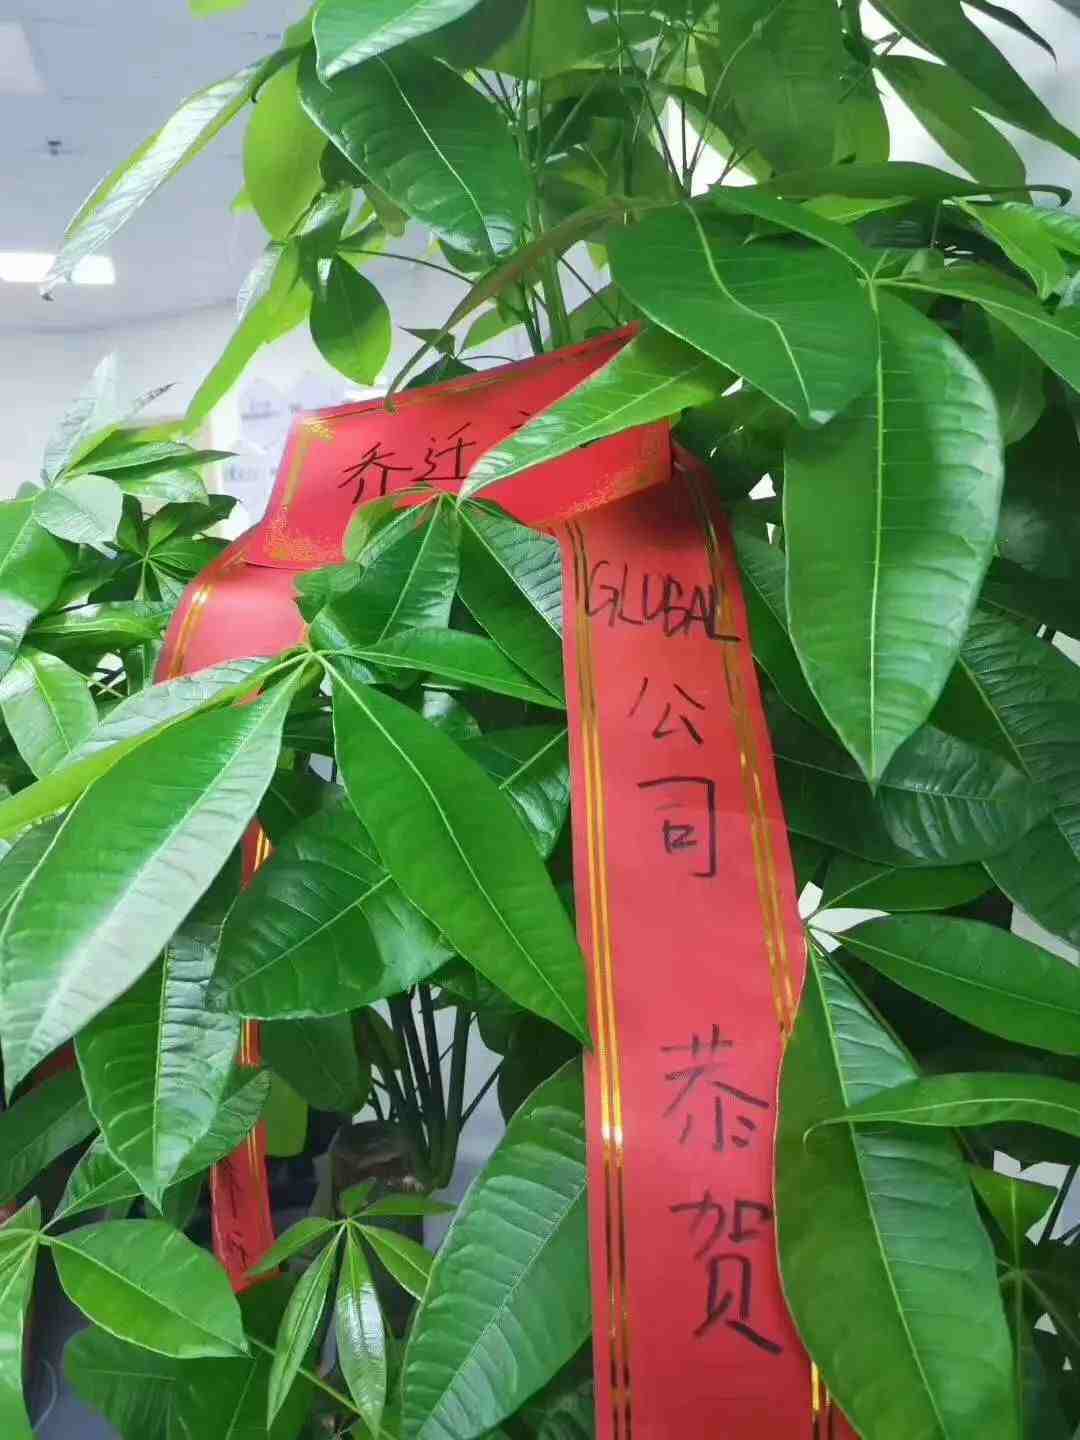 乔迁
GLOBAL公司 恭贺